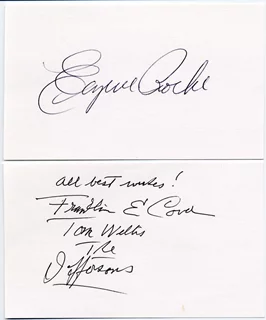 Eugene Roche
all best wishes!
Franklin E Cover
Tom Willis
The
Jeffersons